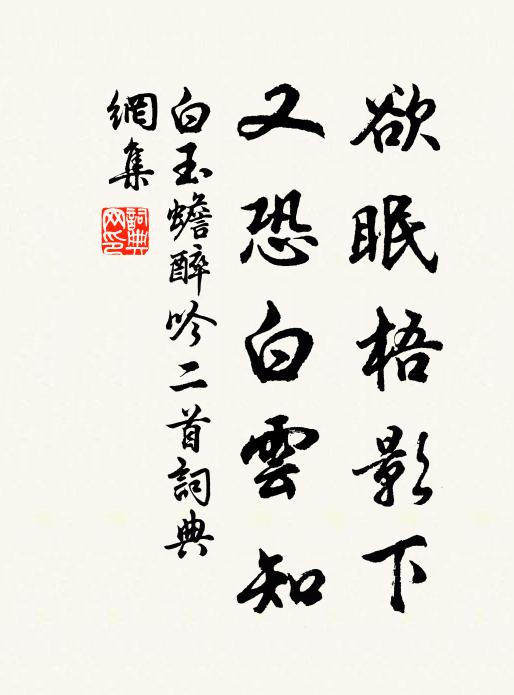 欲眠梧影下
又恐白雲知
白玉蟾醉吟二首詞典
網集
詞典網印